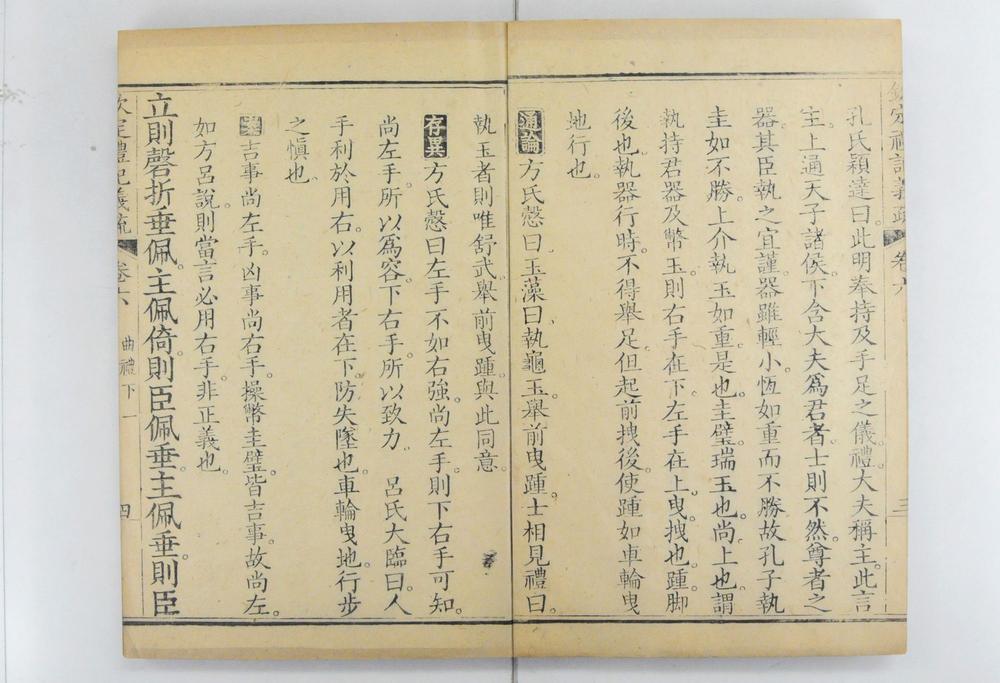 欽定禮記義疏 卷六 三
孔氏穎達曰此明奉持及手足之儀禮大夫稱主此言
主上通天子諸侯下含大夫爲君者士則不然尊者之
器其臣執之宜謹器雖輕小恆如重而不勝故孔子執
圭如不勝上介執玉如重是也圭璧瑞玉也尚上也謂
執持君器及幣玉則右手在下左手在上曳拽也踵脚
後也執器行時不得舉足但起前拽後使踵如車輪曳
地行也
通論方氏慤曰玉藻曰執龜玉舉前曳踵士相見禮曰
執玉者則唯舒武舉前曳踵與此同意
存異方氏慤曰左手不如右強尚左手則下右手可知
尚左手所以爲容下右手所以致力 呂氏大臨曰人
手利於用右以利用者在下防失墜也車輪曳地行步
之慎也
案吉事尚左手凶事尚右手操幣圭璧皆吉事故尚左
如方呂說則當言必用右手非正義也
立則磬折垂佩主佩倚則臣佩垂主佩垂則臣
欽定禮記義疏 卷六 曲禮下一 四